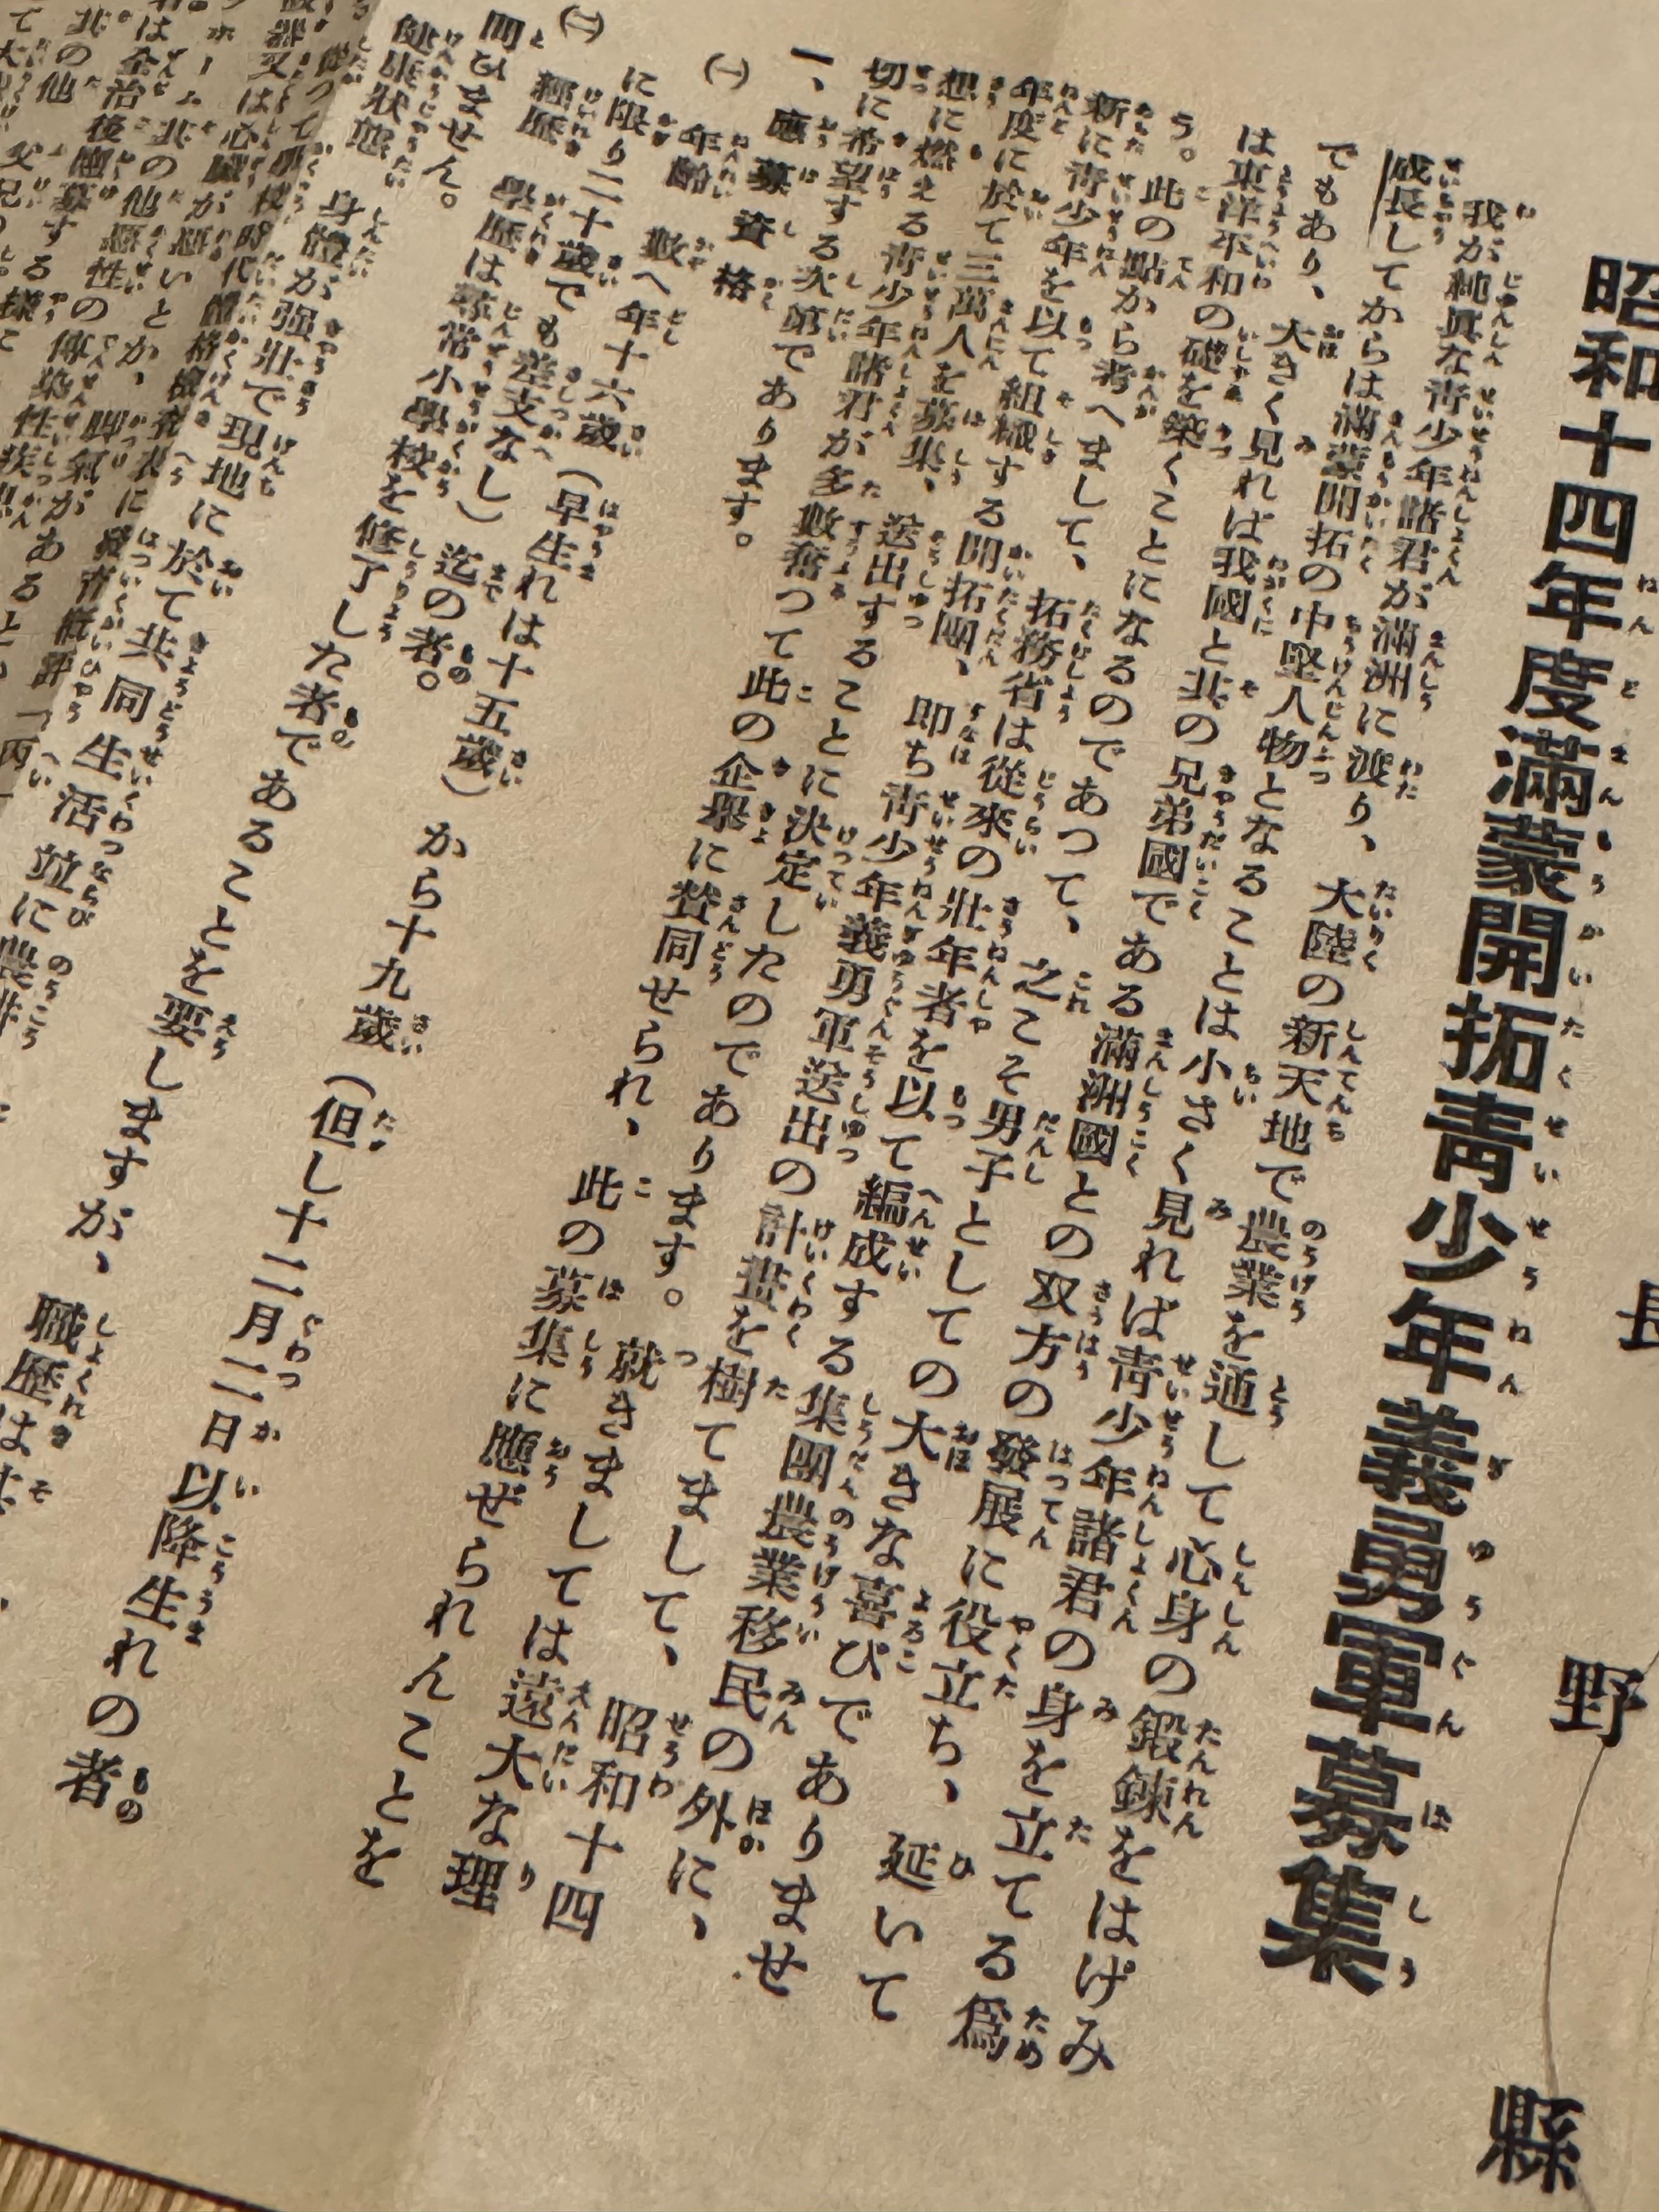 長野縣
昭和十四年度滿蒙開拓靑少年義勇軍募集
我が純眞な靑少年諸君が滿洲に渡り、大陸の新天地で農業を通して心身の鍛鍊をはげみ
成長してからは滿蒙開拓の中堅人物となることは小さく見れば靑少年諸君の身を立てる爲
でもあり、大きく見れば我國と其の兄弟國である滿洲國との双方の發展に役立ち、延いて
は東洋平和の礎を築くことになるのであつて、之こそ男子としての大きな喜びでありませ
う。此の點から考へまして、拓務省は從來の壯年者を以て編成する集團農業移民の外に、
新に靑少年を以て組織する開拓團、卽ち靑少年義勇軍送出の計畫を樹てまして、昭和十四
年度に於て三萬人を募集、送出することに決定したのであります。就きましては遠大な理
想に燃える靑少年諸君が多數奮つて此の企擧に賛同せられ、此の募集に應ぜられんことを
切に希望する次第であります。
一、應募資格
(一) 年齡 數へ年十六歲(早生れは十五歲)から十九歲(但し十二月二日以降生れの者
に限り二十歲でも差支なし)迄の者。
(二) 經歷 學歷は尋常小學校を修了した者であることを要しますが、職歷は
問ひません。
健康狀態 身體が强壯で現地に於て共同生活竝に農耕
學校時代體格檢査表に發育槪評「丙
器又は心臟が惡いとか、脚氣があると
其の他惡性の傳染性疾患がある